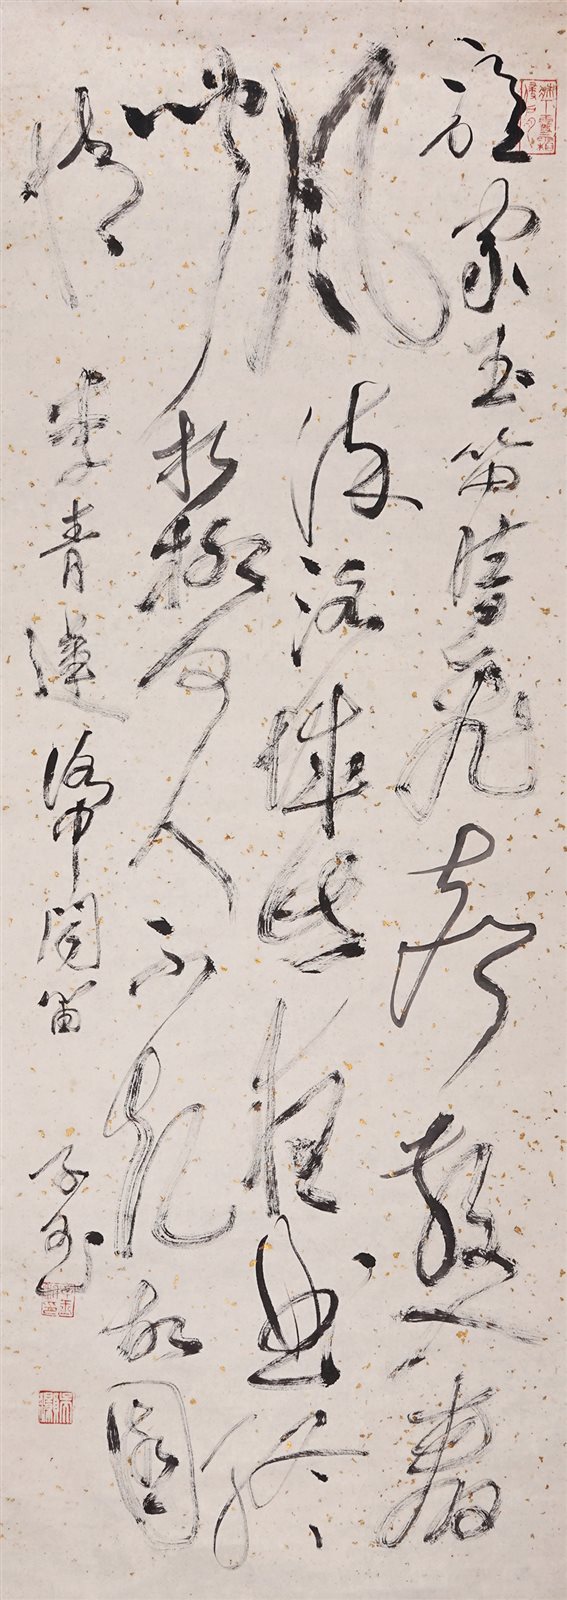 誰家玉笛暗飛聲散入春
風滿洛城此夜曲終
聞折柳何人不起故園
情 李青蓮洛中聞笛